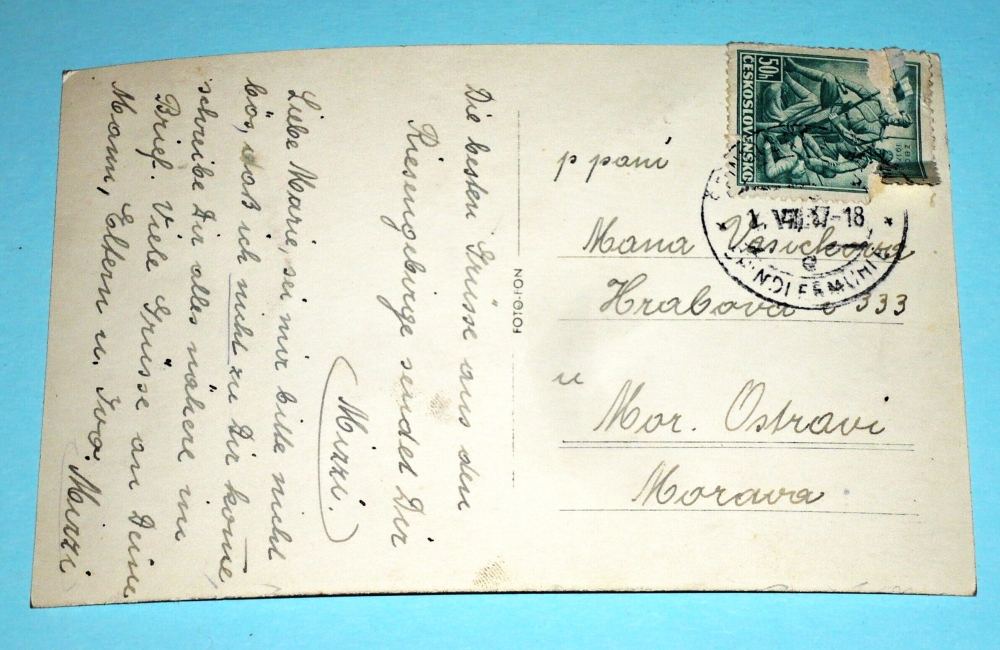 Die besten Grüsse aus den
Riesengebirge sendet Dir
Mizzi.
Liebe Marie, sei mir bitte nicht
bös, daß ich nicht zu Dir kome
schreibe Dir alles nähere im
Brief. Viele Grüsse an Deine
Mann, Eltern u. Ivo. Mizzi
FOTO-FON
p paní
Mana Vasickova
Hrabova č 333
u
Mor. Ostravi
Morava
50h
ČESKOSLOVENSKO
VIII. 37-18
SPINDLERMÜHLE